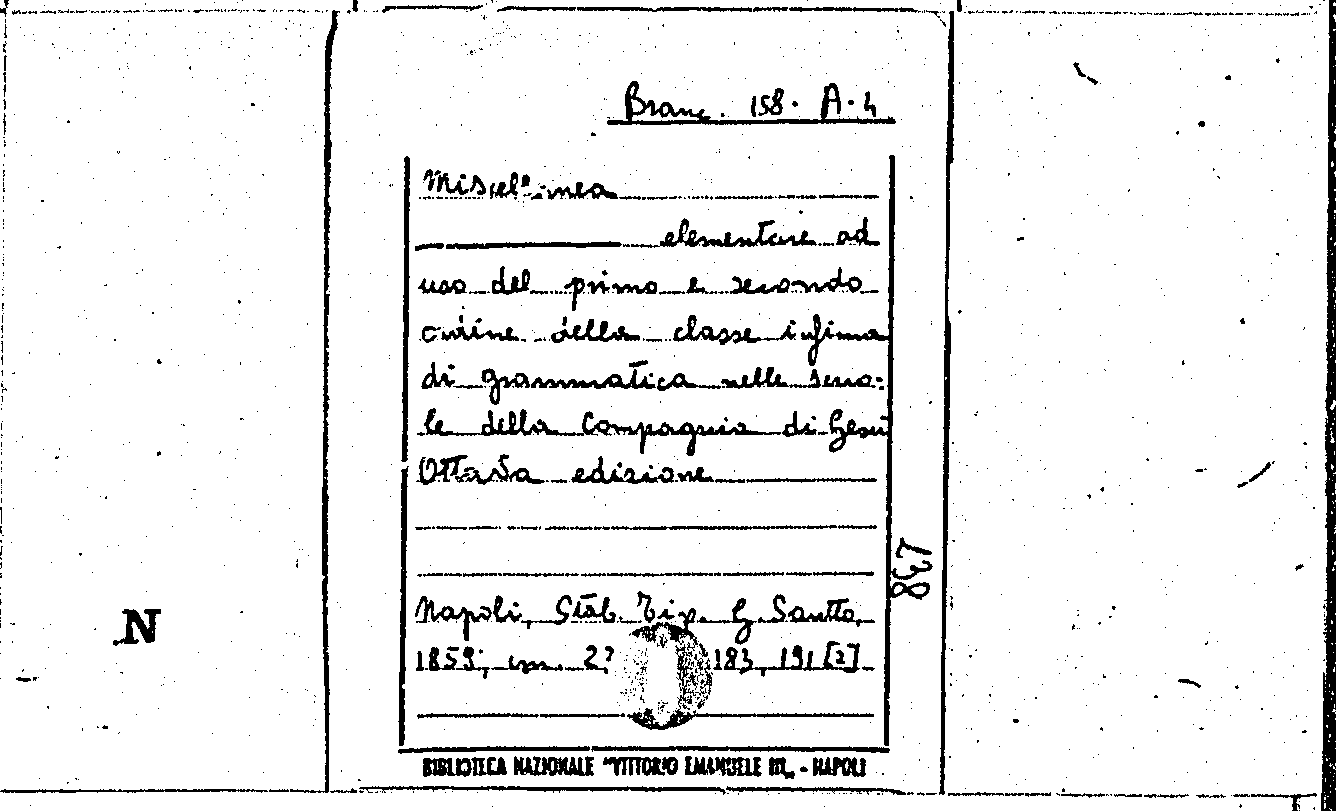 Branc. 158. A. 4
Miscellanea
elementare ad
uso del primo e secondo
ordine della classe infima
di grammatica nelle scuo=
le della Compagnia di Gesù
Ottava edizione
Napoli, Stab. Tip. G. Sautto,
1859; cm. 183, 191 [2]
738
N
BIBLIOTECA NAZIONALE "VITTORIO EMANUELE III„ - NAPOLI